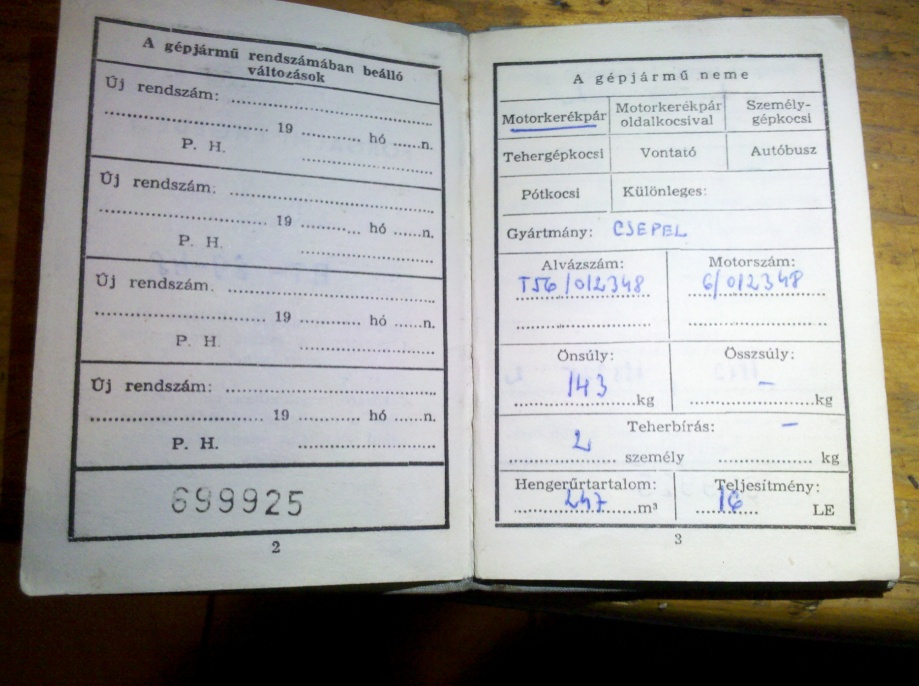 A gépjármű rendszámában beálló
változások
Új rendszám: ........................
........................ 19 .......... hó ......n.
P. H. ........................
Új rendszám: ........................
........................ 19 .......... hó ......n.
P. H. ........................
Új rendszám. ........................
........................ 19 .......... hó ......n.
P. H. ........................
Új rendszám: ........................
........................ 19 .......... hó ......n.
P. H. ........................
699925
2
A gépjármű neme
Motorkerékpár Motorkerékpár oldalkocsival Személy-gépkocsi
Tehergépkocsi Vontató Autóbusz
Pótkocsi Különleges:
Gyártmány: CSEPEL
Alvázszám: Motorszám:
T56/012348 6/012348
Önsúly: Összsúly:
143 kg – kg
Teherbírás: –
2 személy kg
Hengerűrtartalom: Teljesítmény:
247 m³ 16 LE
3